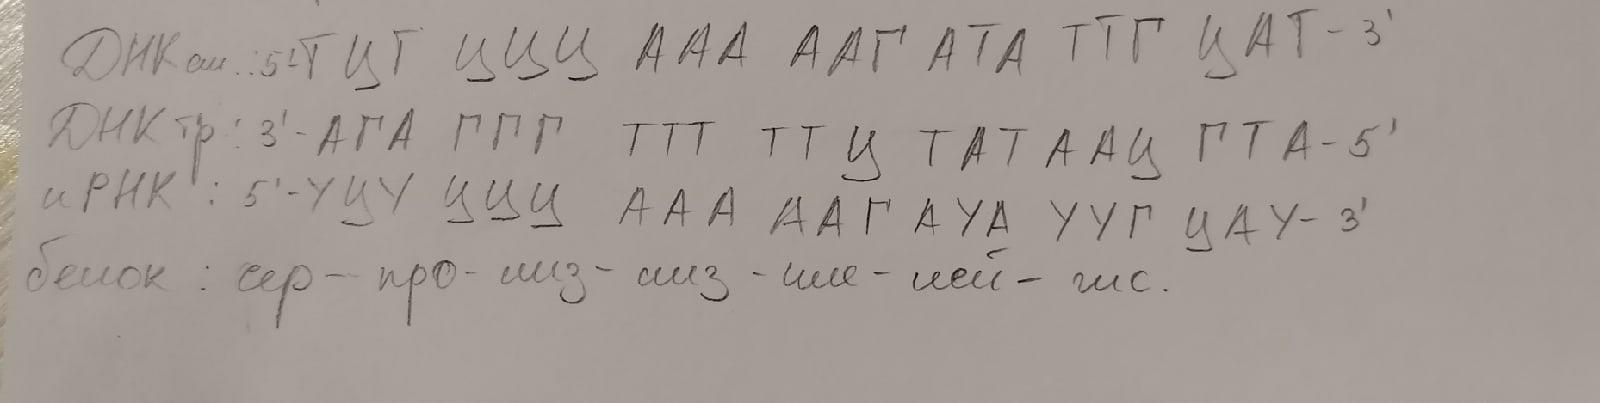 ДНК см.: 5'-ТЦТ ЦЦЦ ААА ААГ АТА ТТГ ЦАТ-3'
ДНК тр: 3'-АГА ГГГ ТТТ ТТЦ ТАТ ААЦ ГТА-5'
и РНК: 5'-УЦУ ЦЦЦ ААА ААГ АУА УУГ ЦАУ-3'
белок: сер-про-лиз-лиз-иле-лей-гис.